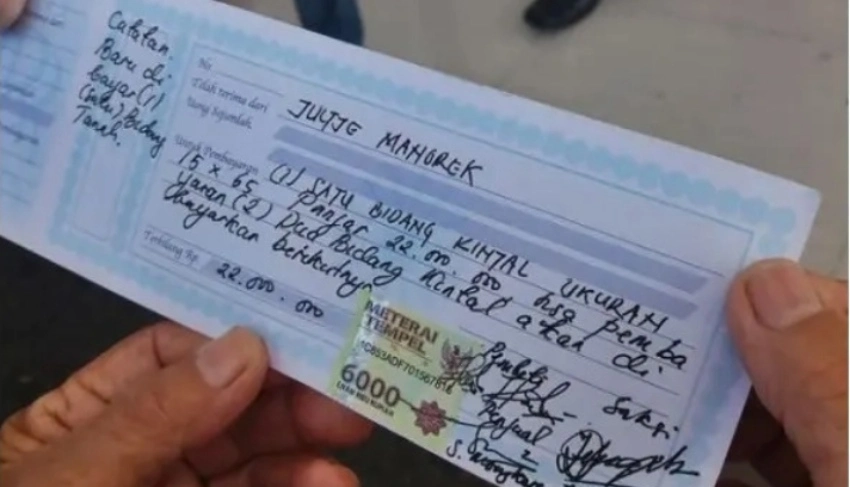 Catatan.
Baru di
bayar (1)
(satu) Bidang
Tanah.
No
Telah terima dari JULTJE MANOREK
Uang Sejumlah
Untuk Pembayaran (1) SATU BIDANG KINTAL UKURAN
15 x 65 Panjar 22.000.000, pemba
yaran (2) Dua Bidang Kintal akan di
bayarkan berikutnya
Terbilang Rp. 22.000.000
METERAI
TEMPEL
6000
ENAM RIBU RUPIAH
Pembeli Saksi
Penjual